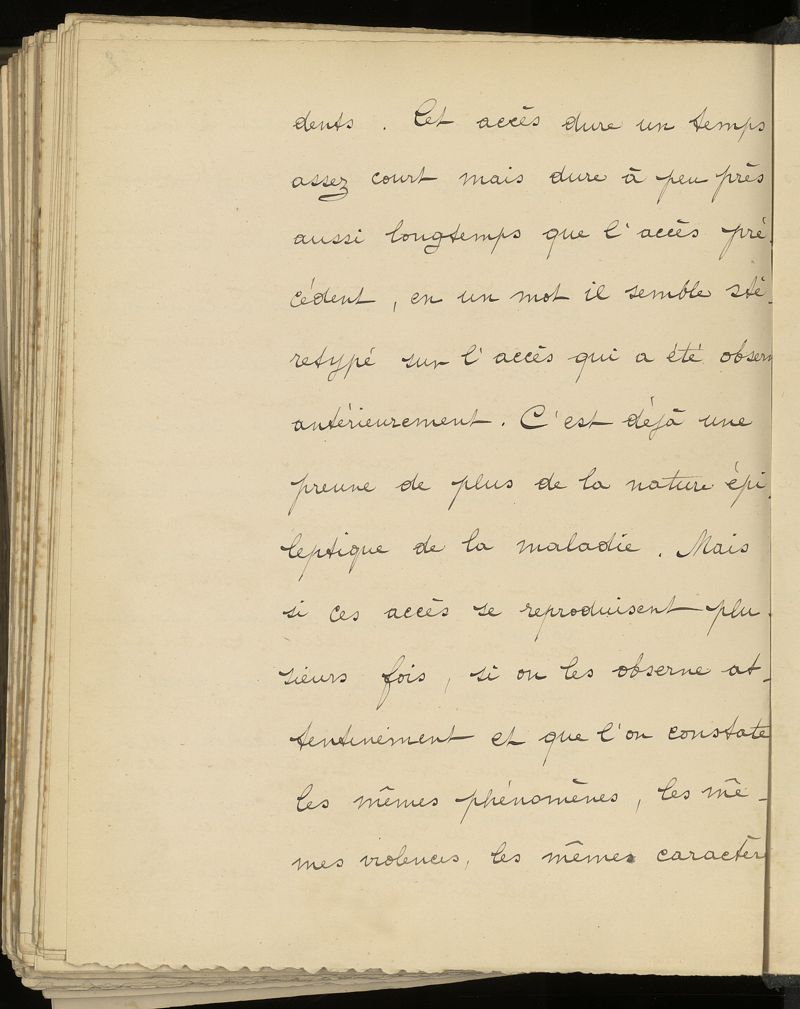 dents. Cet accès dure un temps
assez court mais dure à peu près
aussi longtemps que l'accès pré-
cédent, en un mot il semble sté-
retypé sur l'accès qui a été observ
antérieurement. C'est déjà une
preuve de plus de la nature épi-
leptique de la maladie. Mais
si ces accès se reproduisent plu-
sieurs fois, si on les observe at-
tentivement et que l'on constate
les mêmes phénomènes, les mê-
mes violences, les mêmes caractèr